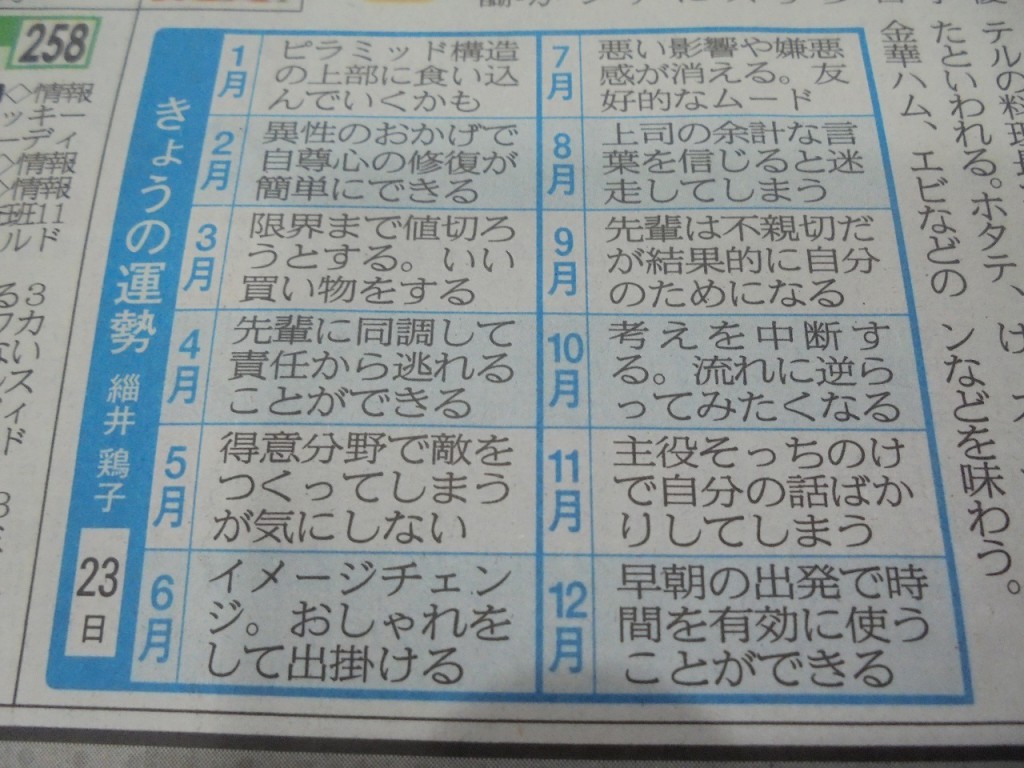 きょうの運勢
緇井 鶏子
23日
1月
ピラミッド構造
の上部に食い込
んでいくかも
2月
異性のおかげで
自尊心の修復が
簡単にできる
3月
限界まで値切ろ
うとする。いい
買い物をする
4月
先輩に同調して
責任から逃れる
ことができる
5月
得意分野で敵を
つくってしまう
が気にしない
6月
イメージチェン
ジ。おしゃれを
して出掛ける
7月
悪い影響や嫌悪
感が消える。友
好的なムード
8月
上司の余計な言
葉を信じると迷
走してしまう
9月
先輩は不親切だ
が結果的に自分
のためになる
10月
考えを中断す
る。流れに逆ら
ってみたくなる
11月
主役そっちのけ
で自分の話ばか
りしてしまう
12月
早朝の出発で時
間を有効に使う
ことができる
たといわれる。ホタテ、
金華ハム、エビなどの
ンなどを味わう。
258